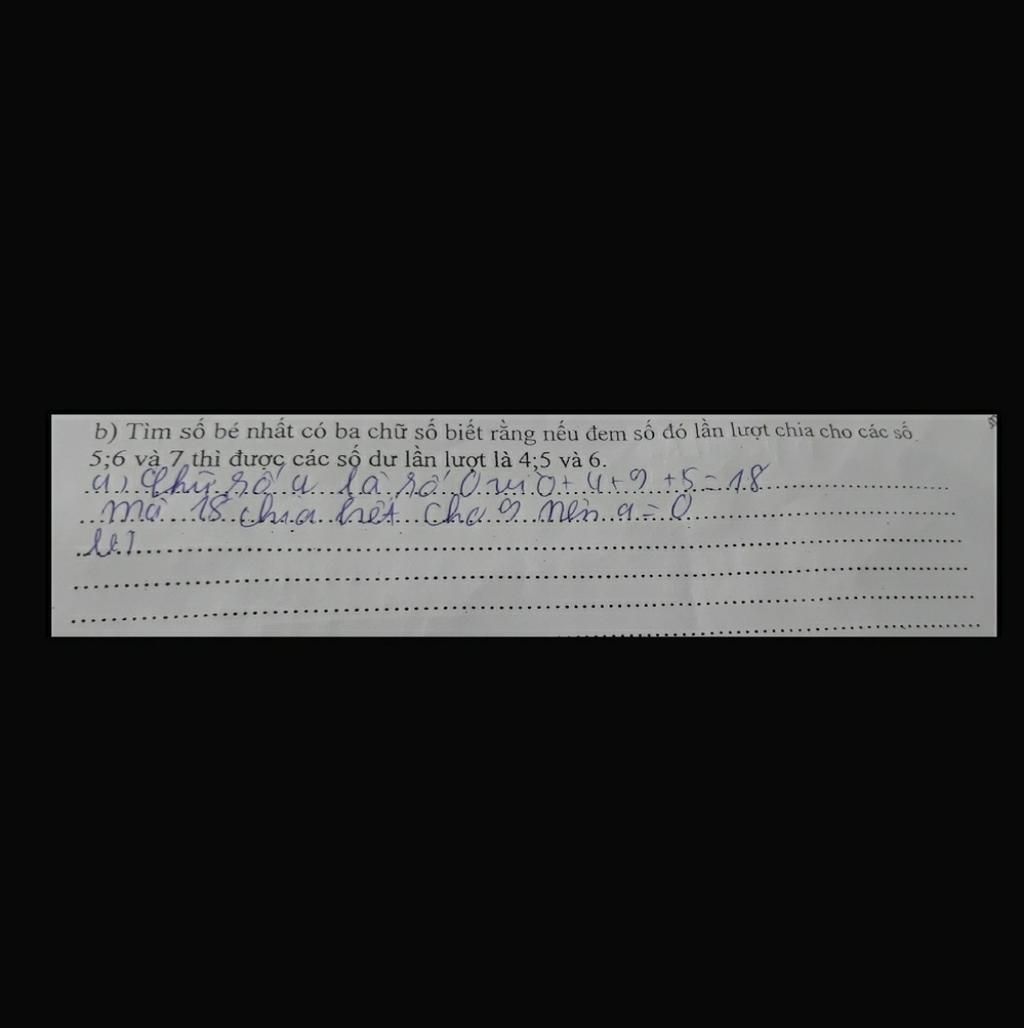 b) Tìm số bé nhất có ba chữ số biết rằng nếu đem số đó lần lượt chia cho các số
5;6 và 7 thì được các số dư lần lượt là 4;5 và 6.
a) Chữ số a là số 0 vì 0 + 4 + 9 + 5 = 18
mà 18 chia hết cho 9 nên a = 0
b)